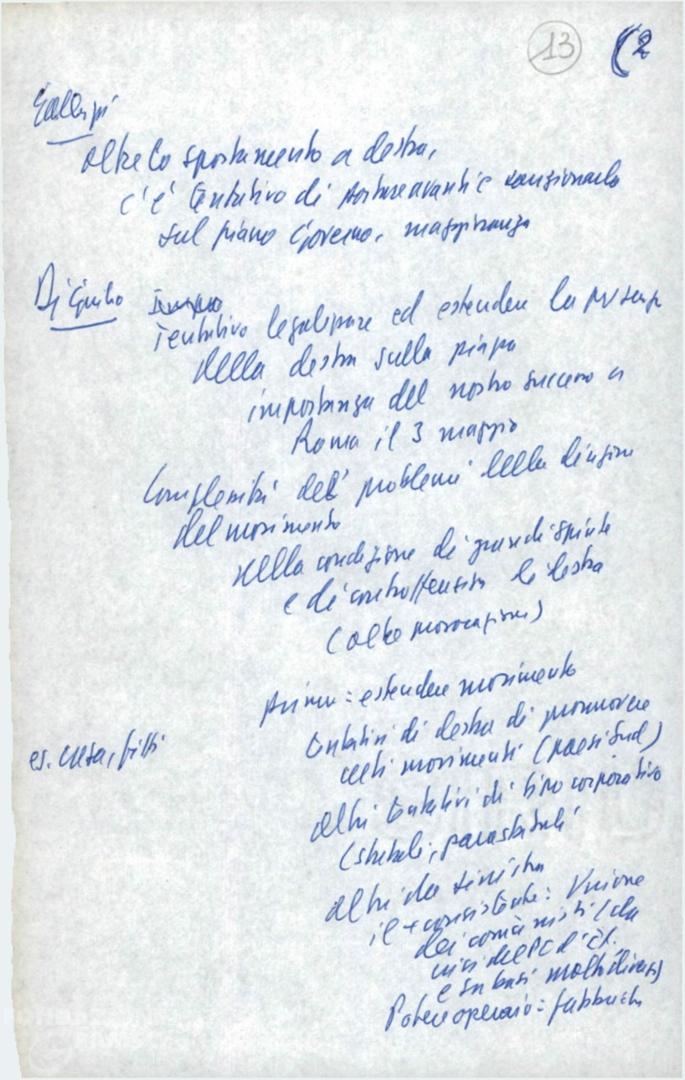 13 (2
Galluzzi
oltre lo spostamento a destra,
c'è tentativo di portare avanti e sanzionarlo
sul piano Governo, maggioranza
Di Giulio
Tentativo legalizzare ed estendere la presenza
della destra sulla piazza
importanza del nostro successo a
Roma il 3 maggio
Complessità dei problemi della direzione
del movimento
nella condizione di grandi spinte
e di controffensiva le destra
(oltre provocazioni)
primo: estendere movimento
tentativi di destra di promuovere
certi movimenti (paesi Sud)
es. casa, fitti
altri tentativi di tipo corporativo
(statali, parastatali
altri da sinistra
il + consistente: Unione
dei comunisti (da
vici del PC d'I.
e su basi molto diverse)
Potere operaio: fabbriche